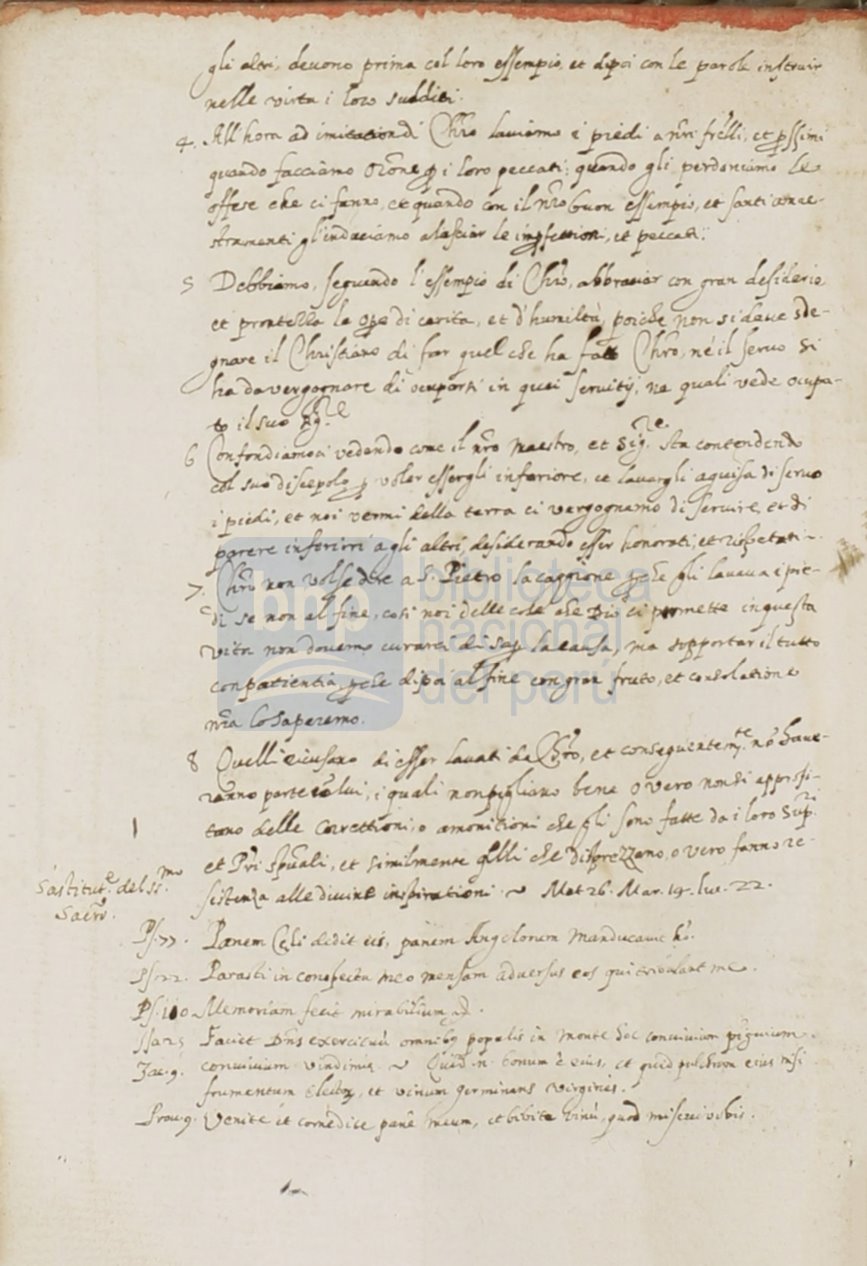 gli altri, deuono prima col loro essempio, et dipoi con le parole instruir
nelle virtu i loro sudditi.
4. All'hora ad imitation di Chro lauiamo i piedi a nri frelli, et pssimi
quando facciamo orone p i loro peccati; quando gli perdoniamo le
offese che ci fanno, et quando con il nro buon essempio, et santi amae-
stramenti gl'induciamo a lasciar le impfettioni, et peccati.
5 Debbiamo, seguendo l'essempio di Chro, abbracciar con gran desiderio
et prontezza le ope di carita, et d'humiltà, poiche non si deue sde-
gnare il Christiano di far quel che ha fatto Chro, ne il seruo si
ha da vergognare di occuparsi in quei seruitij, ne quali vede occupa-
to il suo Sigre
6 Confondiamoci vedendo come il nro Maestro, et Sigre sta contendendo
col suo discepolo p voler essergli inferiore, et lauargli a guisa di seruo
i piedi, et noi vermi della terra ci vergognamo di seruire, et di
parere inferiori a gli altri, desiderando esser honorati, et rispettati.
7. Chro non volse dire a S. Pietro la caggione pche gli lauaua i pie-
di se non al fine, così noi delle cose che Dio ci permette in questa
vita non douemo curarci di sap la causa, ma sopportar il tutto
con patientia, pche dipoi al fine con gran fruto, et consolatione
nra lo saperemo.
8 Quelli ricusano di esser lauati da Chro, et conseguentemte nō haue-
ranno parte cō lui, i quali non pigliano bene o vero non si approfi-
tano delle correttioni, o amonitioni che gli sono fatte da i loro Supri
et Pri Spuali, et similmente qlli che disprezzano, o vero fanno re-
sistenza alle diuine inspirationi ~ Mat 26. Mar. 14. luc. 22.
S'astitute del ssmo
Sacrō.
Ps. 77. Panem Cęli dedit eis, panem Angelorum manducauit hō.
Ps. 22. Parasti in conspectu meo mensam aduersus eos qui tribulant me.
Ps. 110 Memoriam fecit mirabilium
Isa 25 Faciet Dns exercituū omnibus populis in monte hoc conuiuium pinguium.
conuiuium vindimię ~
Zac. 9. Quid .n. bonum ē eius, et quid pulchrum eius nisi
frumentum Electorum, et vinum germinans virgines.
Prou. 9. Venite et comedite panē meum, et bibite vinū, quod miscui vobis.
biblioteca
nacional
del perú
bnp